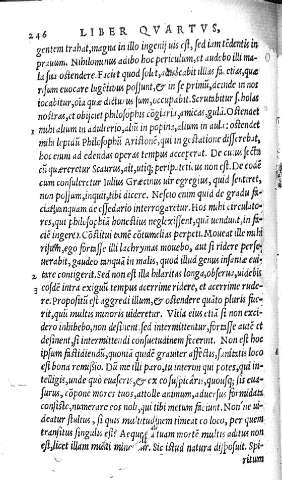 246 LIBER QVARTVS,
gentem trahat, magna in illo ingenij uis est, sed iam tẽdentis in
prauum. Nihilominus adibo hoc periculum, et audebo illi ma-
la sua ostendere. Faciet quod solet,
risum euocare lugẽtibus possunt, & in se primũ, deinde in nos
iocabitur, oĩa quæ dictu us sum, occupabit. Scrutabitur sholas
nostras, et obijciet philosophis cõgiaria, amicas, gulã. Ostendet
mihi alium in adulterio, aliũ in popina, alium in aula: ostendet
mihi lepidũ Philosophũ Aristonẽ, qui in gestatione differebat,
hoc enim ad edendas operas tempus acceperat. De cuius secta
cũ quæreretur Scaurus, ait, utiq; peripateticus non est. De eodẽ
cum consuleretur Iulius Græcinus uir egregius, quid sentiret,
non possum, inquit, tibi dicere. Nescio enim quid de gradu fa
ciat, tanquam de essedario interrogaretur. Hos mihi circulato-
res, qui philosophiã honestius neglexissent, quã uendunt, in fa-
ciẽ ingeret. Cõstitui tamẽ cõtumelias perpeti. Moueat ille mihi
risum, ego fortasse illi lachrymas mouebo, aut si ridere perse-
uerabit, gaudeo tanquã in malis, quod illud genus insaniæ cui-
tare contigerit. Sed non est illa hilaritas longa, obserua, uidebis
eosdẽ intra exiguũ tempus acerrime ridere, et acerrime rude-
re. Propositũ est aggredi illum, & ostendere quãto pluris fue-
rit, quũ multis minoris uideretur. Vitia eius etiã si non exci-
dero inhibebo, non desinent, sed intermittentur, fortasse autẽ et
desinent, si intermittendi consuetudinem fecerint. Non est hoc
ipsum fastidiendũ, quoniã quidẽ grauiter affectis, sanitatis loco
est bona remissio. Dũ me illi paro, tu interon qui potes, qui in-
telligis, unde quò euaseris, & ex eo suspicaris, quousq; sis eua-
surus, cõpone mores tuos, attolle animum, aduersus formidata
consiste, numerare eos noli, qui tibi metum faciunt. Nonne ui-
deatur stultus, si quis multitudinem timeat eo loco, per quem
transitus singulis est? Aeque ad tuam mortẽ multis aditus non
est, licet illam multi minentur. Sic istud natura disposuit. Spi-
ritum